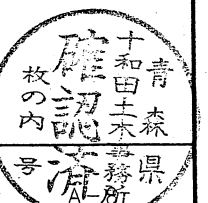 青森県
十和田土木事務所
確認済
枚の内
号
A-8